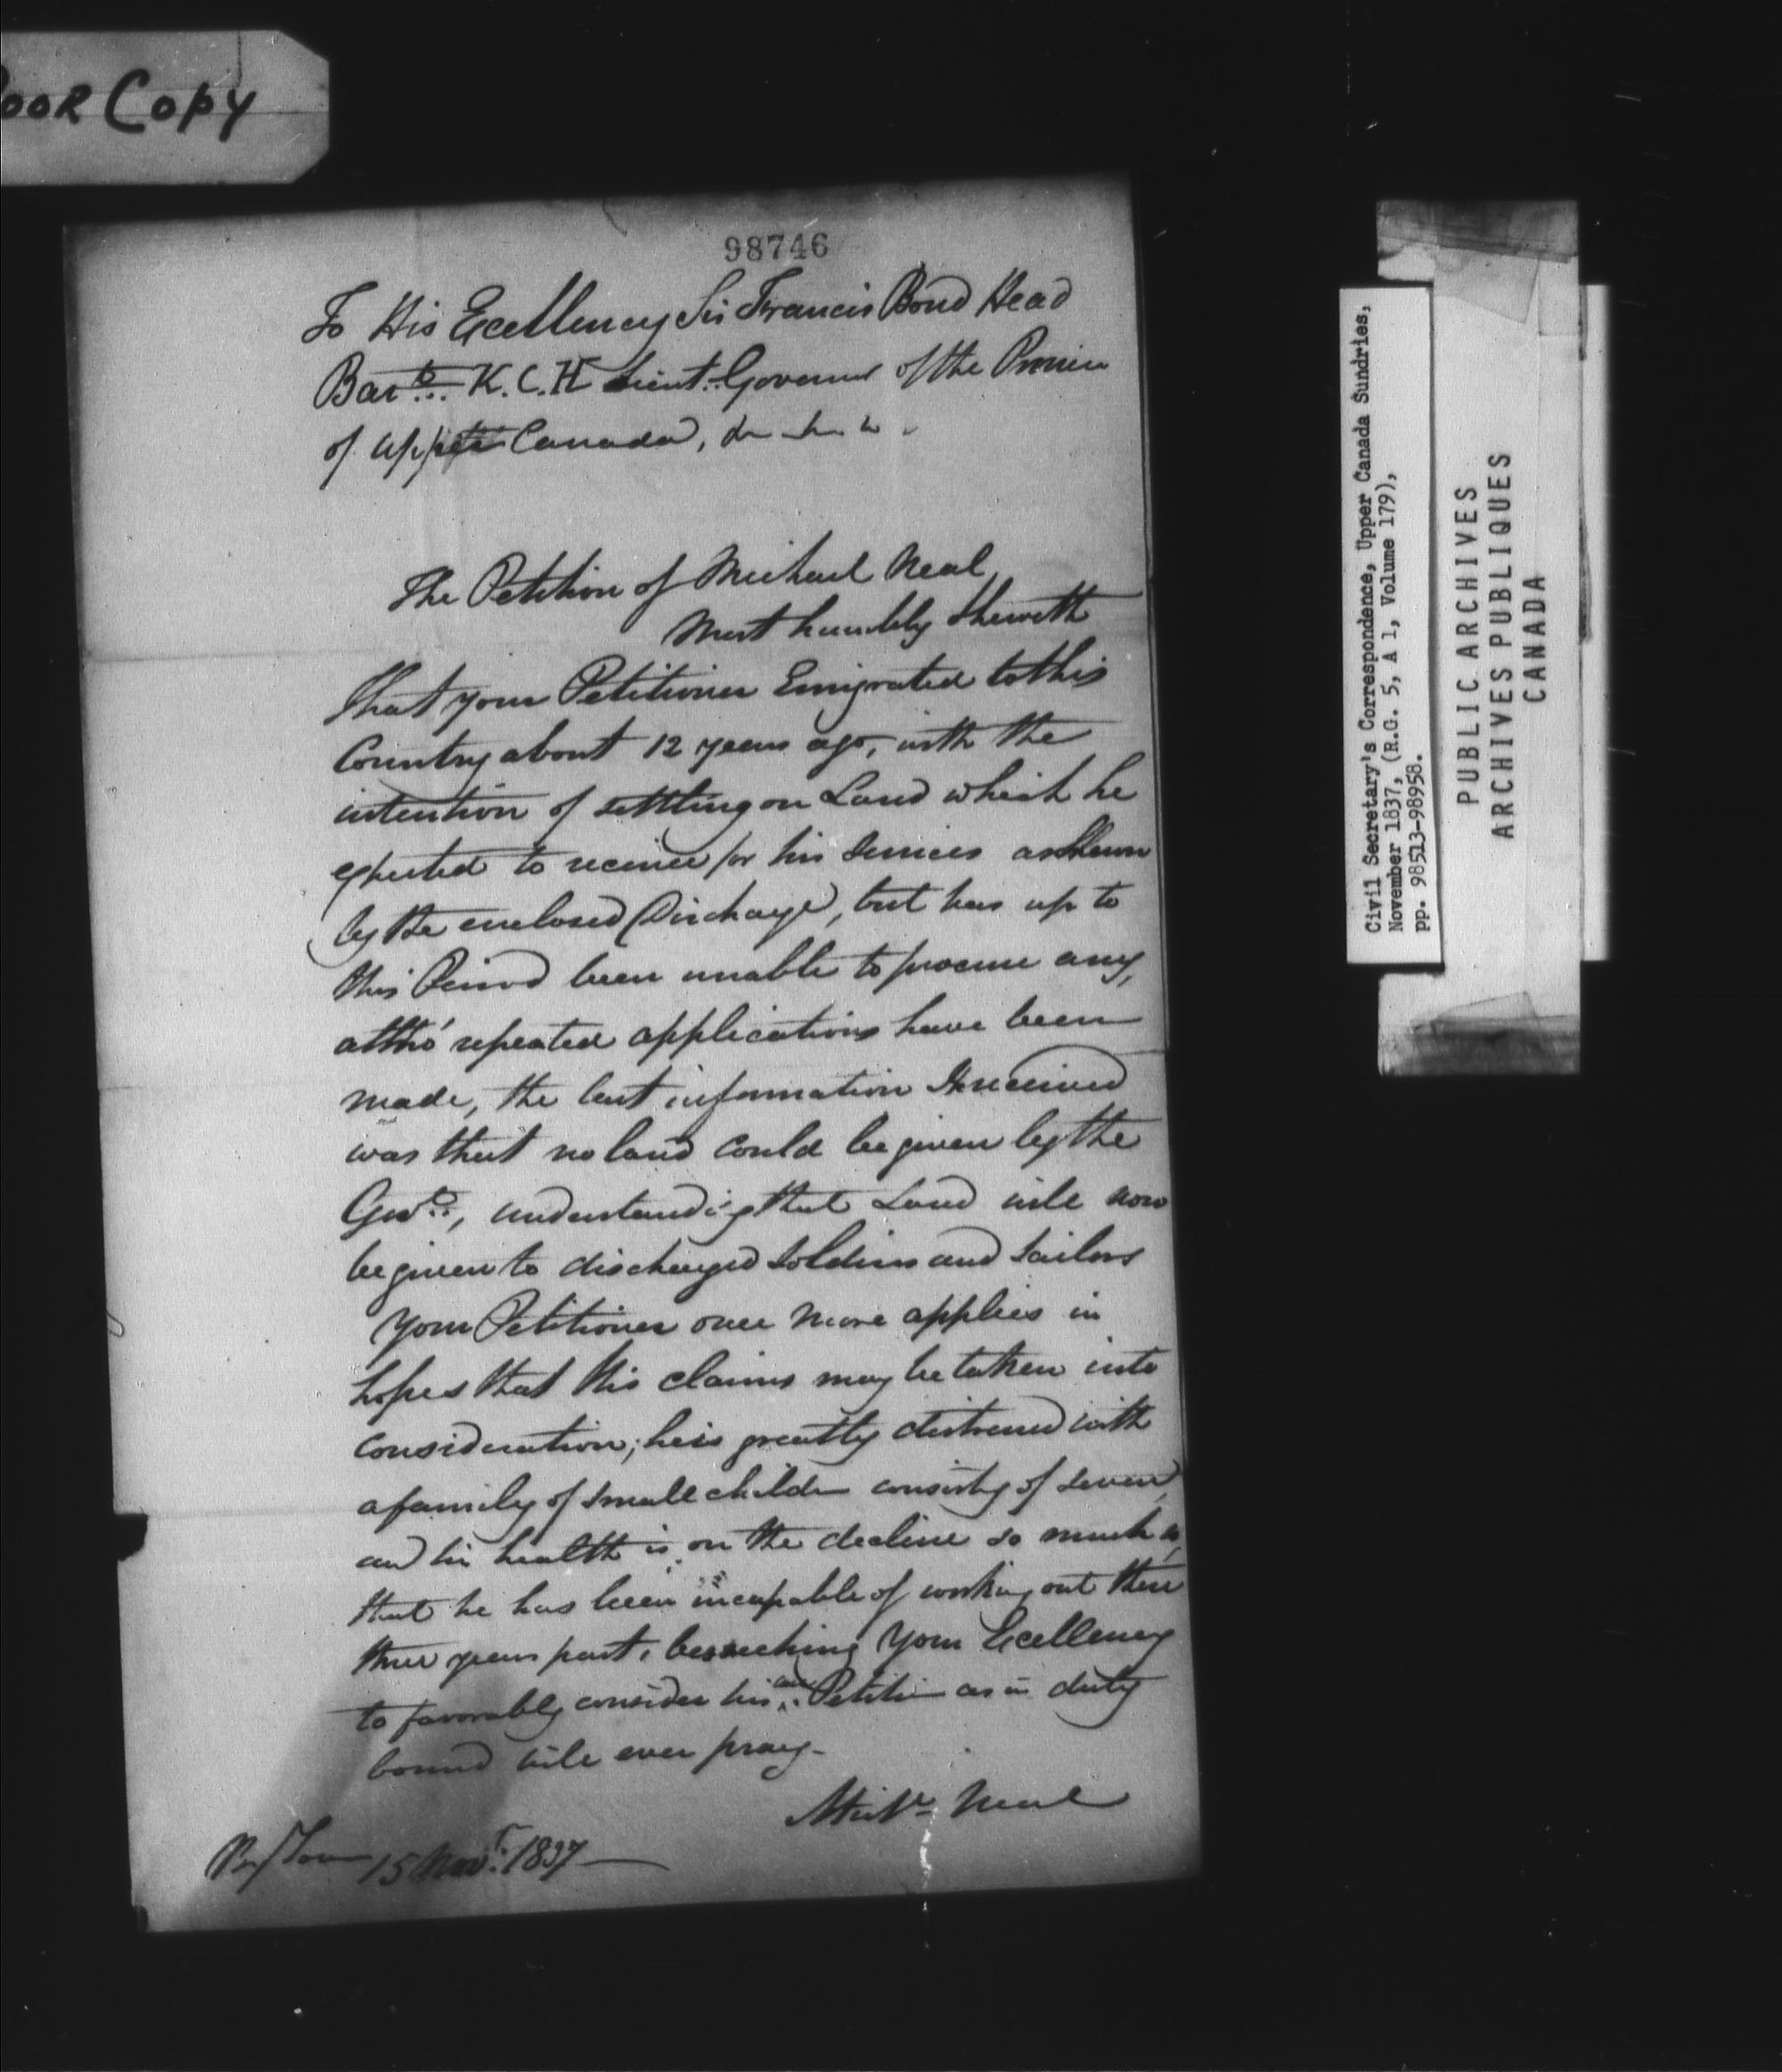 oor Copy
98746
To His Ecellency Sir Francis Bond Head
Bart. K.C.H Lieut. Governor of the Province
of Upper Canada,
The Petition of Michael Neal
Most humbly Sheweth
That your Petitioner Emigrated to this
Country about 12 years ago, with the
intention of settling on Land which he
expected to receive for his Services as Shewn
by the enclosed Discharge, but has up to
this Period been unable to procure any,
altho' repeated applications have been
made, the last information received
was that no land could be given by the
Govt., understanding that Land will now
be given to discharged Soldiers and Sailors
Your Petitioner once more applies in
hopes that his claims may be taken into
consideration; he is greatly distressed with
a family of small children consisting of seven,
and his health is on the decline so much so,
that he has been incapable of working out these
three years past, beseeching Your Ecellency
to favorably consider his Petition as in duty
bound will ever pray-
Michl. Neal
15 Novr. 1837
Civil Secretary's Correspondence, Upper Canada Sundries,
November 1837, (R.G. 5, A 1, Volume 179),
pp. 98513-98958.
PUBLIC ARCHIVES
ARCHIVES PUBLIQUES
CANADA